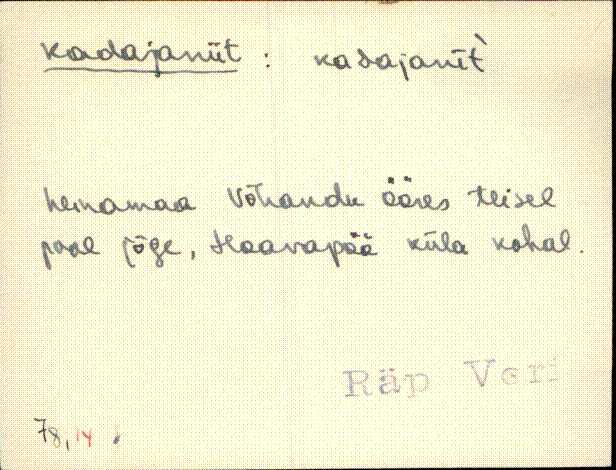 Kadajaniit : kadajanīt̀
heinamaa Võhandu ääres teisel
pool jõge, Haavapää küla kohal.
Räp Veri
78, 14